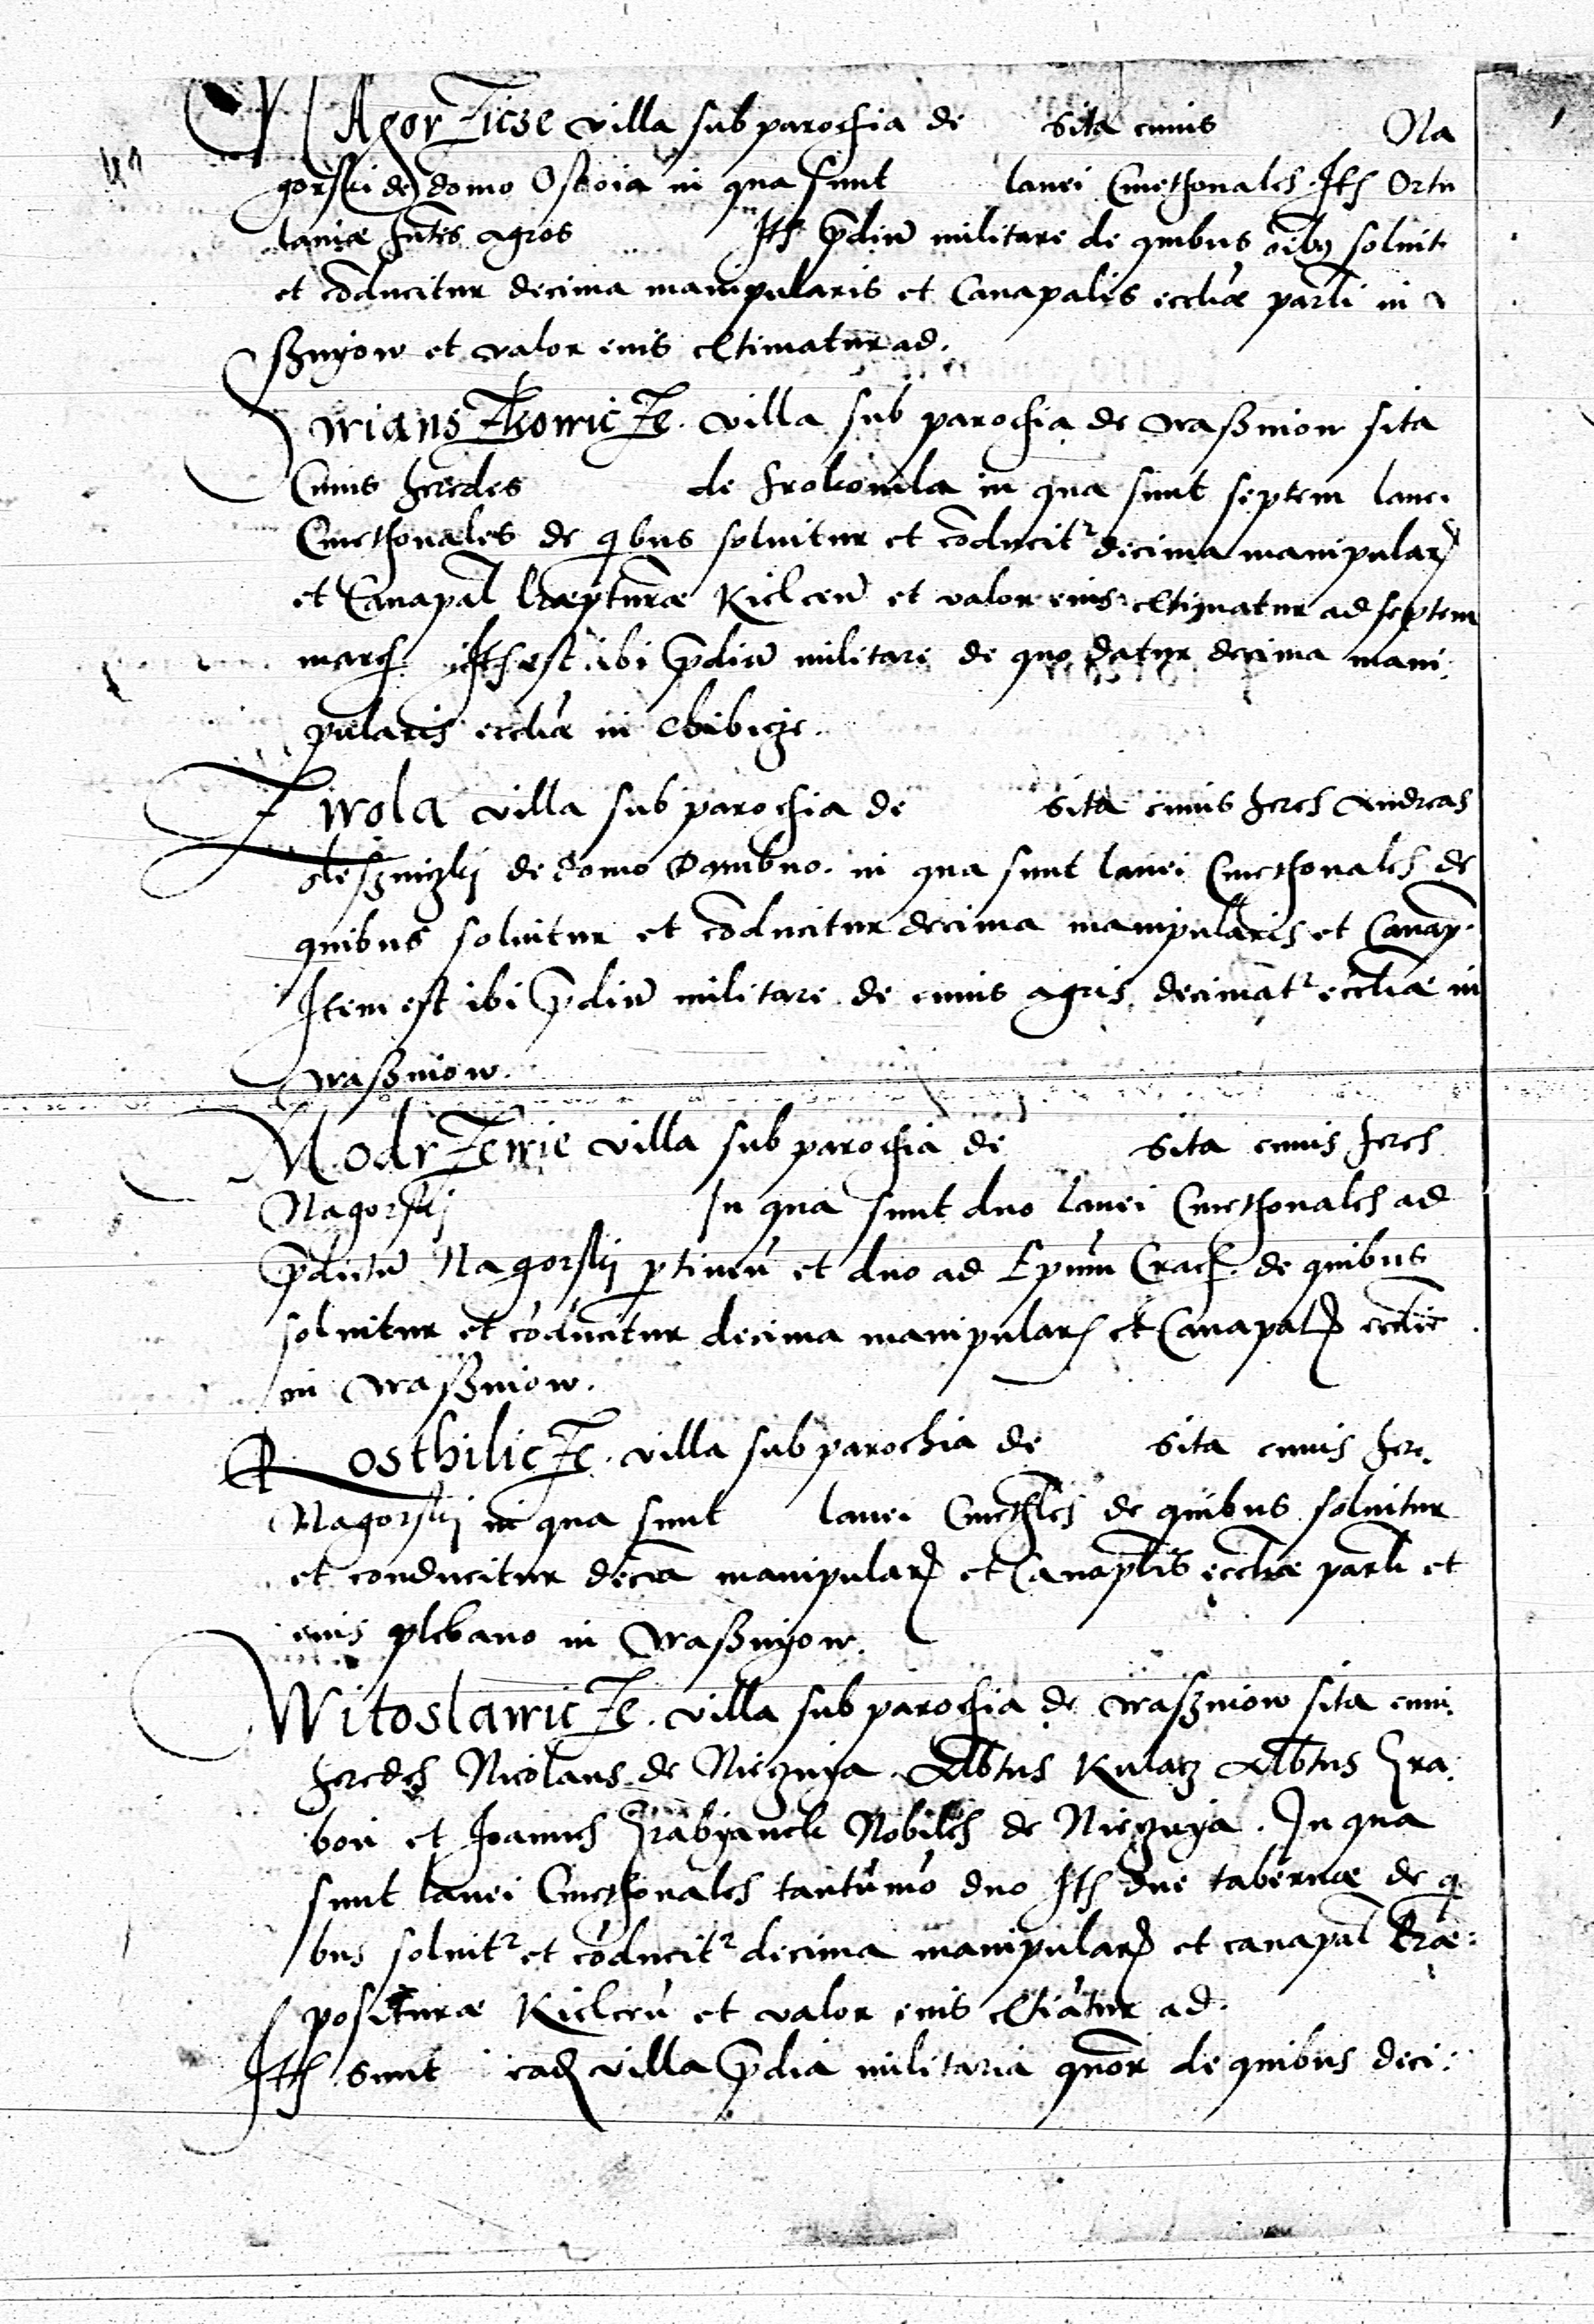 NAgorzicze villa sub parochia de sita cuius Na
gorski de domo Ostoia in qua sunt lanei Cmethonales Ith Ortu
laniæ hn̄tes agros Ith p̄diū militare de quibus oībȝ soluit
et cōducitur decima manipularis et Canapalis eccliæ parli in
ssnyow et valor eius estimatur ad.
Iwianszkowicze. villa sub parochia de wassniow sita
Cuius heredes de Grokowila in qua sunt septem lanei
Cmethonales de qibus soluitur et cōducitr decima manipular
et Canapal præpturæ Kielcen̄ et valor eius estimatur ad septem
march Ith est ibi p̄diū militare de quo datur decima mani:
pularis eccliæ in Chibicze.
Iwola villa sub parochia de sita cuius heres Andreas
oleszniczkj de domo Dambno. in qua sunt lanei Cmethonales de
quibus soluitur et cōducitur decima manipularis et Canap.
Item est ibi p̄diū militare de cuius agris decimatr eccliæ in
wassniow.
Modrzewie villa sub parochia de sita cuius heres
Nagorskj In qua sunt duo lanei Cmethonales ad
p̄diū Nagorskj ptineū et duo ad Epum Crach. de quibus
soluitur et cōducitur decima manipular et Canapal ecclie
in wassniow.
Rosthilicze. villa sub parochia de sita cuius here.
Nagorskj in qua sunt lanei Cmethles de quibus soluitur
et conducitur decīa manipular et Canaplis eccliæ parli et
eius plebano in wassnyow.
Witoslawicze. villa sub parochia de wassniow sita cuiu.
heredes Nicolaus de Nieznya Albtus Kulacz Albtus Gra.
boń et Joannes Grabyanek Nobiles de Nieznya. In qua
sunt lanei Cmethonales tantūmō duo Ith due tabernæ de q
bus soluitr et cōducitr decima manipular et canapal Præ:
posituræ Kielceū et valor eius estiātur ad.
Ith sunt ead villa p̄dia militaria quor de quibus deci: